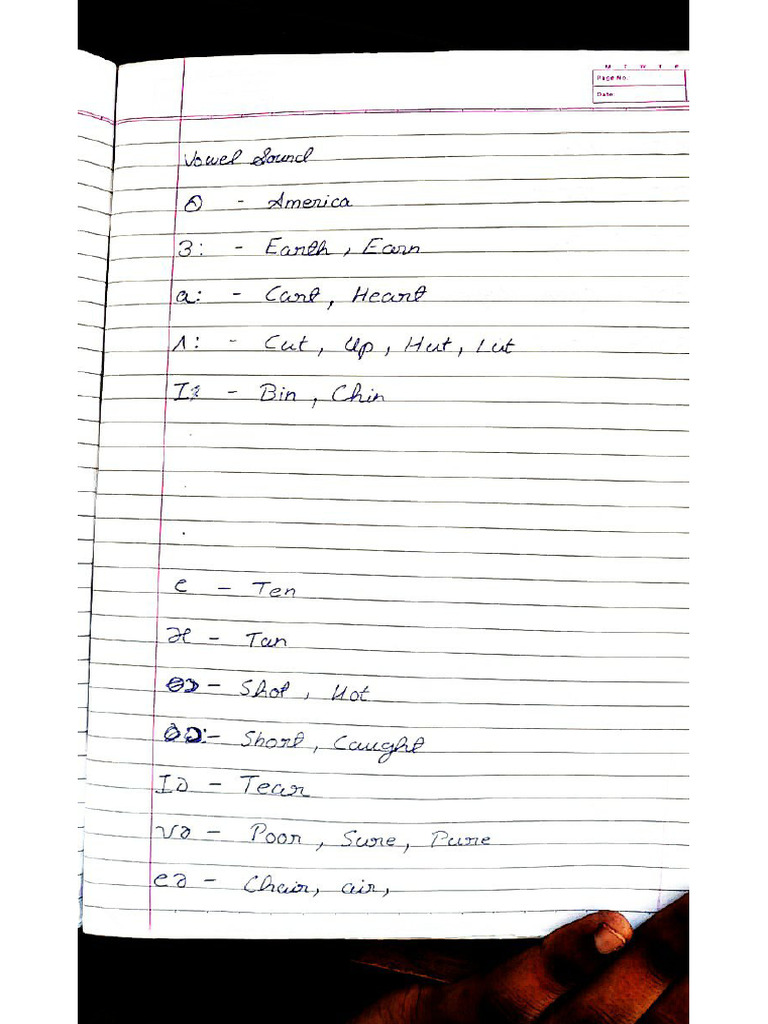 M T W T F
Page No.
Date
Vowel Sound
ə - America
3: - Earth, Earn
a: - Cart, Heart
Λ: - Cut, Up, Hut, Lut
I: - Bin, Chin
e - Ten
æ - Tan
ɔ - Shot, Hot
ɔ: - Short, Caught
Iə - Tear
ʊə - Poor, Sure, Pure
eə - Chair, air,